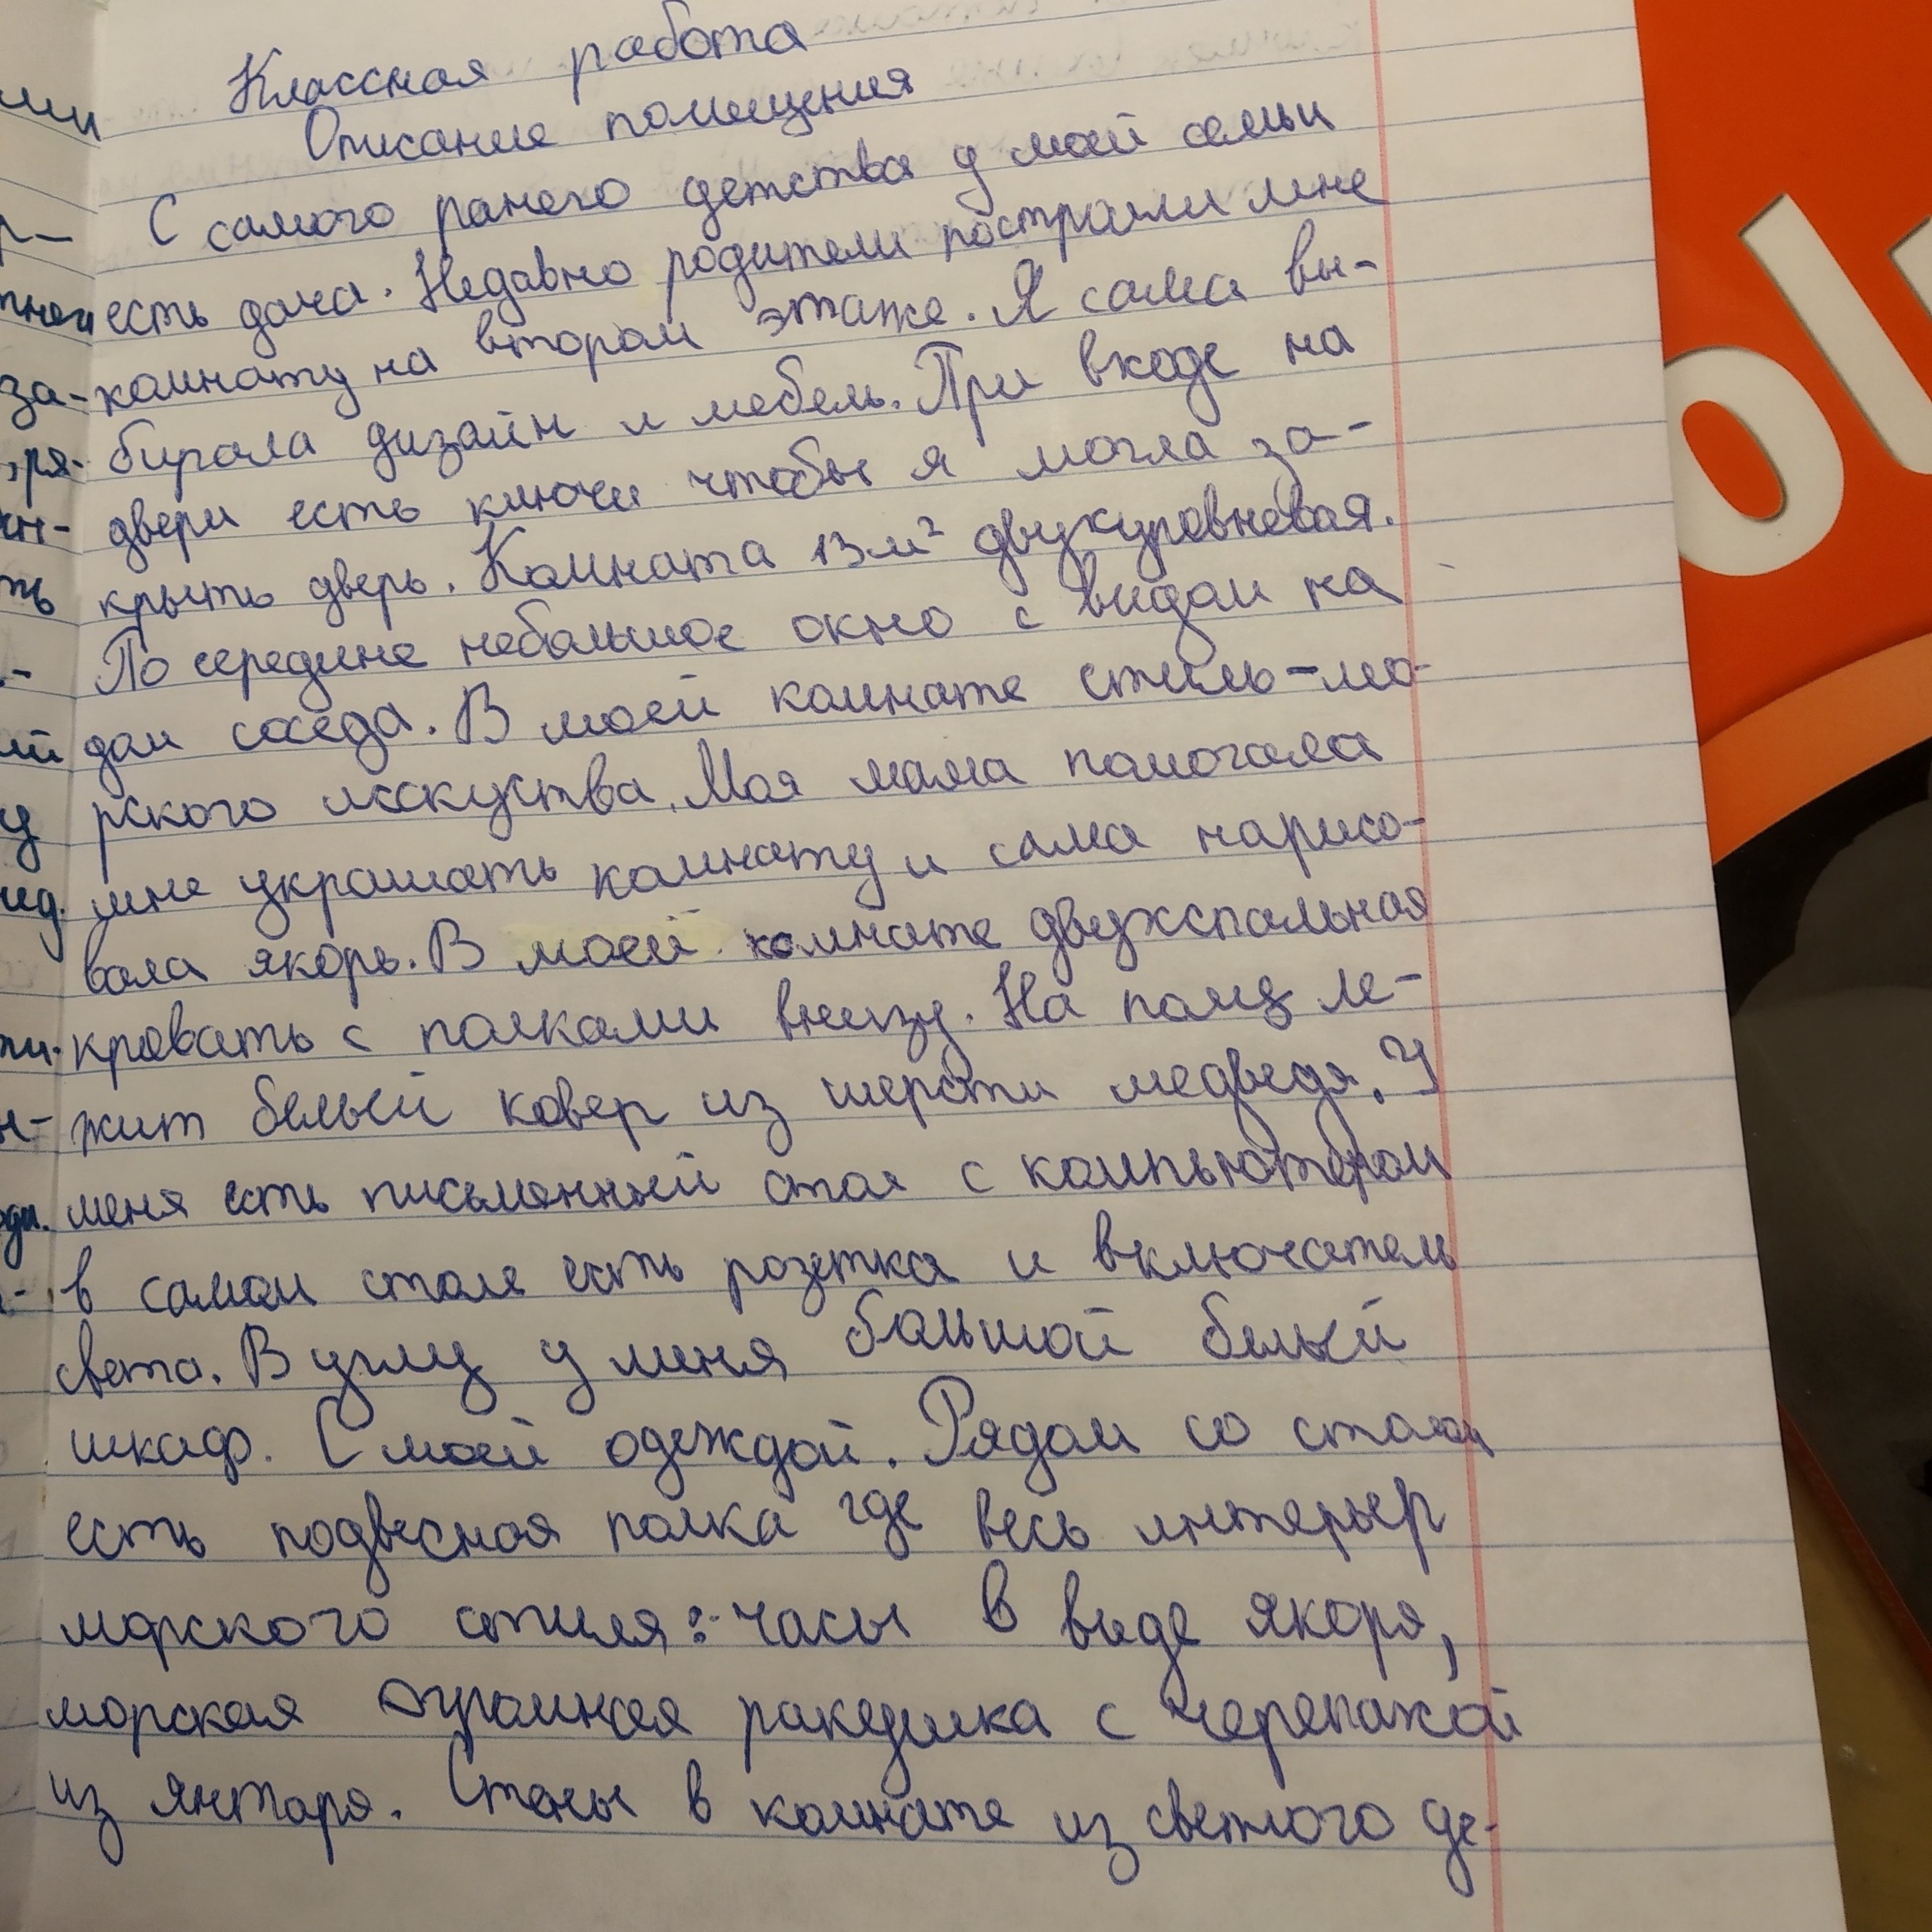 Классная работа
Описание помещения
С самого ранего детства у моей семьи
есть дача. Недавно родители построили мне
комнату на втором этаже. Я сама вы-
бирала дизайн и мебель. При входе на
двери есть ключи чтобы я могла за-
крыть дверь. Комната 13м² двухуровневая.
По середине небольшое окно с видом на
дом соседа. В моей комнате стиль-мо-
рского исскуства. Моя мама помогала
мне украшать комнату и сама нарисо-
вала якорь. В моей комнате двухспальная
кровать с полками внизу. На полу ле-
жит белый ковер из шерсти медведя. У
меня есть письменный стол с компьютером
в самом столе есть розетка и включатель
света. В углу у меня большой белый
шкаф. С моей одеждой. Рядом со столом
есть подвесная полка где весь интерьер
морского стиля: часы в виде якоря,
морская огромная ракушка с черепахой
из янтаря. Стены в комнате из светлого де-